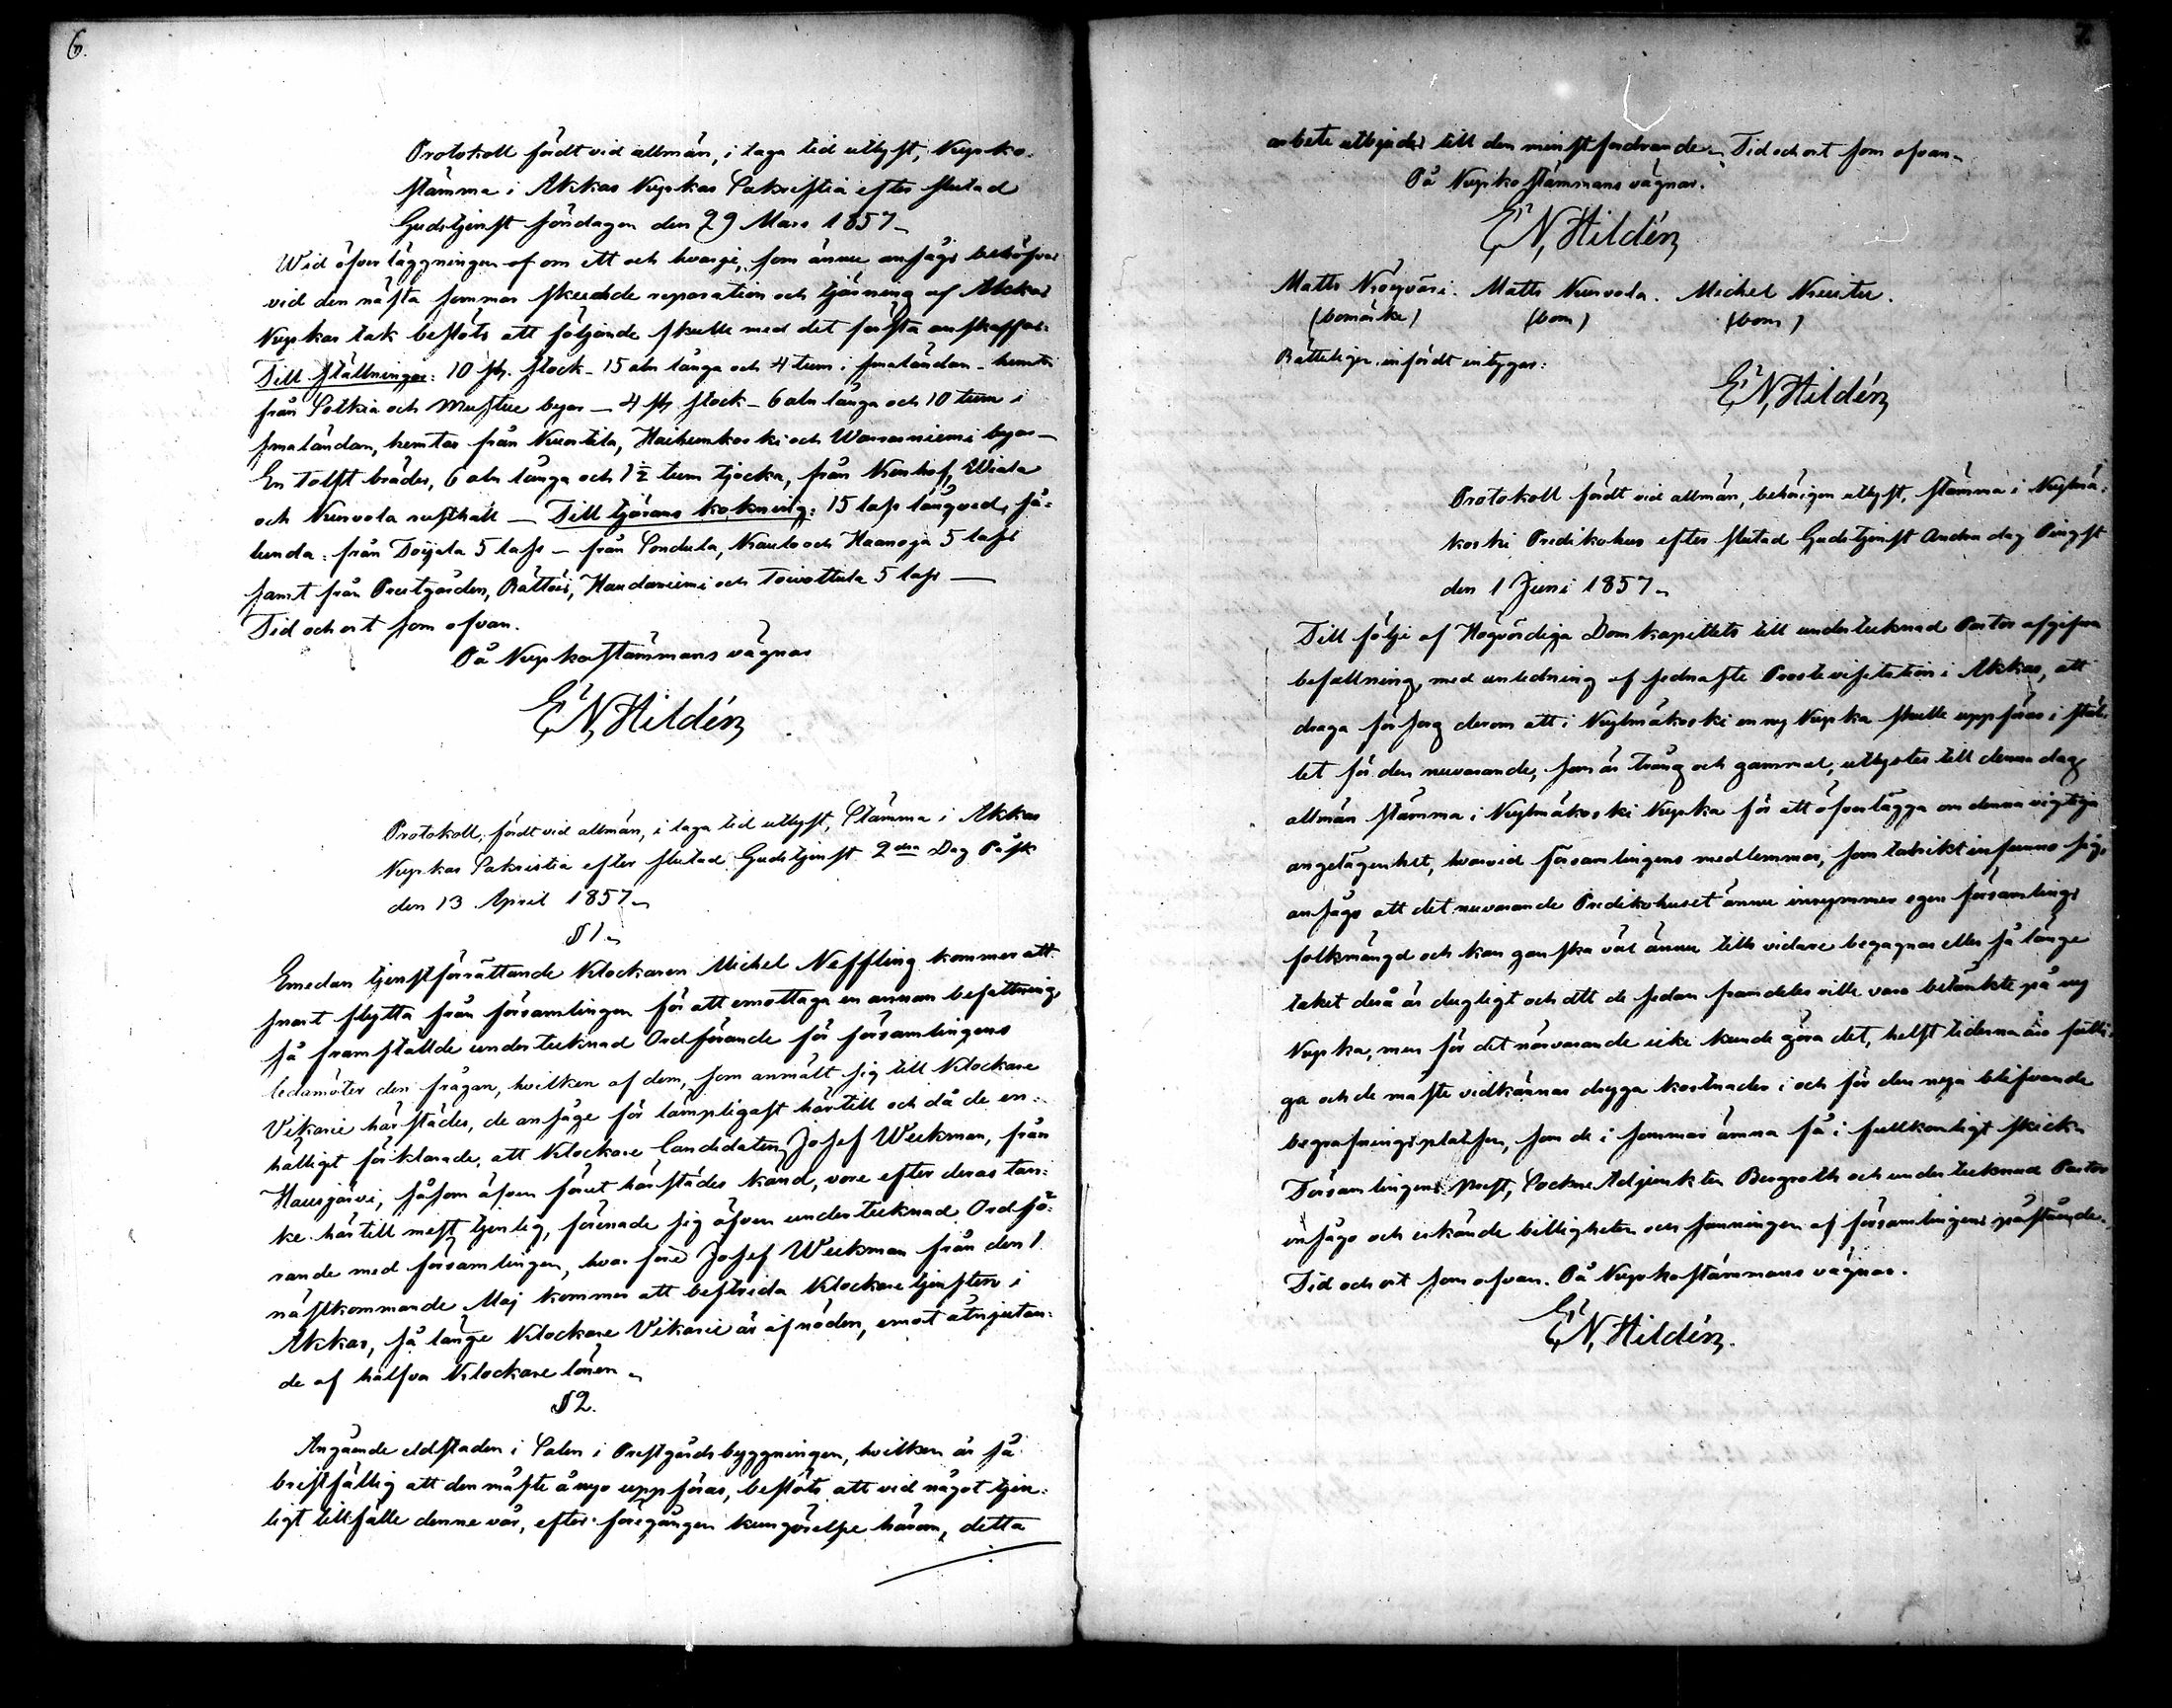 6.
Protokoll fördt vid allmän, i laga tid utlyst, Kyrko-
stämma i Akkas Kyrkas Sakristia efter slutad
Gudstjenst söndagen den 29 Mars 1857.
Wid öfverläggningen af om ett och hvarje, som ännu ansågs behöfvas
vid den nästa sommar skeende reparation och tjärning af Akkas
Kyrkas tak beslöts att följande skulle med det första anskaffas:
Till ställningar: 10 st. stock - 15 aln långa och 4 tum i smaländan - hemtas
från Sotkia och Mustue byar - 4 st stock - 6 aln långa och 10 tum i
smaländan, hemtas från Kurtila, Haihunkoski och Warrasniemi byar -
En tolft bräder, 6 aln långa och 1½ tum tjocka, från Konhof, Wiala
och Kurvola rusthåll - Till tjärans kokning: 15 lass långved, så-
lunda: från Toijala 5 lass - från Sondula, Nauto och Haanoja 5 lass
samt från Prestgården, Rättöri, Haudaniemi och Toivottula 5 lass -
Tid och ort som ofvan.
På Kyrkostämmans vägnar
E N Hildén
Protokoll, fördt vid allmän, i laga tid utlyst, Stämma i Akkas
Kyrkas Sakristia efter slutad Gudstjenst 2dra Dag Påsk
den 13 April 1857.
§ 1.
Emedan tjenstförrättande Klockaren Michel Neffling kommer att
snart flytta från församlingen för att emottaga en annan befattning,
så framställde undertecknad Ordförande för församlingens
ledamöter den frågan, hvilken af dem, som anmält sig till Klockare
Vikarie härstädes, de ansåge för lämpligast härtill och då de en-
hälligt förklarade, att Klockare Candidaten Josef Weckman, från
Hausjärvi, såsom äfven förut härstädes känd, vore efter deras tan-
ke härtill mest tjenlig, förenade sig äfven undertecknad Ordfö-
rande med församlingen, hvarföre Josef Weckman från den 1
nästkommande Maj kommer att bestrida Klockare tjensten i
Akkas, så länge Klockare Vikarie är af nöden, emot åtnjutan-
de af halfva Klockare lönen.
§ 2.
Angående eldstaden i Salen i Prestgårdsbyggningen, hvilken är så
bristfällig att den måste å nyo uppföras, beslöts att vid något tjen-
ligt tillfälle denne vår, efter föregången kungörelse härom, detta
7.
arbete utbjudes till den minstfordrande. Tid och ort som ofvan.
På Kyrkostämmans vägnar.
E N Hildén
Matts Matts Kurvola. Michel
(bomärke) (bom) (bom)
Rätteligen infördt intygar:
E N Hildén
Protokoll fördt vid allmän, behörigen utlyst, stämma i Kylmä-
koski Predikohus efter slutad Gudstjenst Andra dag Pingst
den 1 Juni 1857.
Till följe af Högvördiga Domkapitlets till undertecknad Pastor afgifna
befallning, med anledning af sednaste Prostevisitation i Akkas, att
draga försorg derom att i Kylmäkoski en ny Kyrka skulle uppföras i stäl-
let för den nuvarande, som är trång och gammal, utlystes till denna dag
allmän stämma i Kylmäkoski Kyrka för att öfverlägga om denna vigtiga
angelägenhet, hvarvid församlingens medlemmar, som talrikt infunno sig,
ansågo att det nuvarande Predikohuset ännu inrymmer egen församlings
folkmängd och kan ganska väl ännu tills vidare begagnas eller så länge
taket derå är dugligt och att de sedan framdeles ville vara betänkte på ny
Kyrka, men för det närvarande icke kunde göra det, helst tiderna äro fatti-
ga och de måste vidkännas dryga kostnader i och för den nya blifvande
begrafningsplatsen, som de i sommar ämna få i fullkomligt skick.
Församlingens Prest, Sockne Adjunkten Bergroth och undertecknad Pastor
insågo och erkände billigheten och sanningen af församlingens påstående.
Tid och ort som ofvan. På Kyrkostämmans vägnar.
E N Hildén.